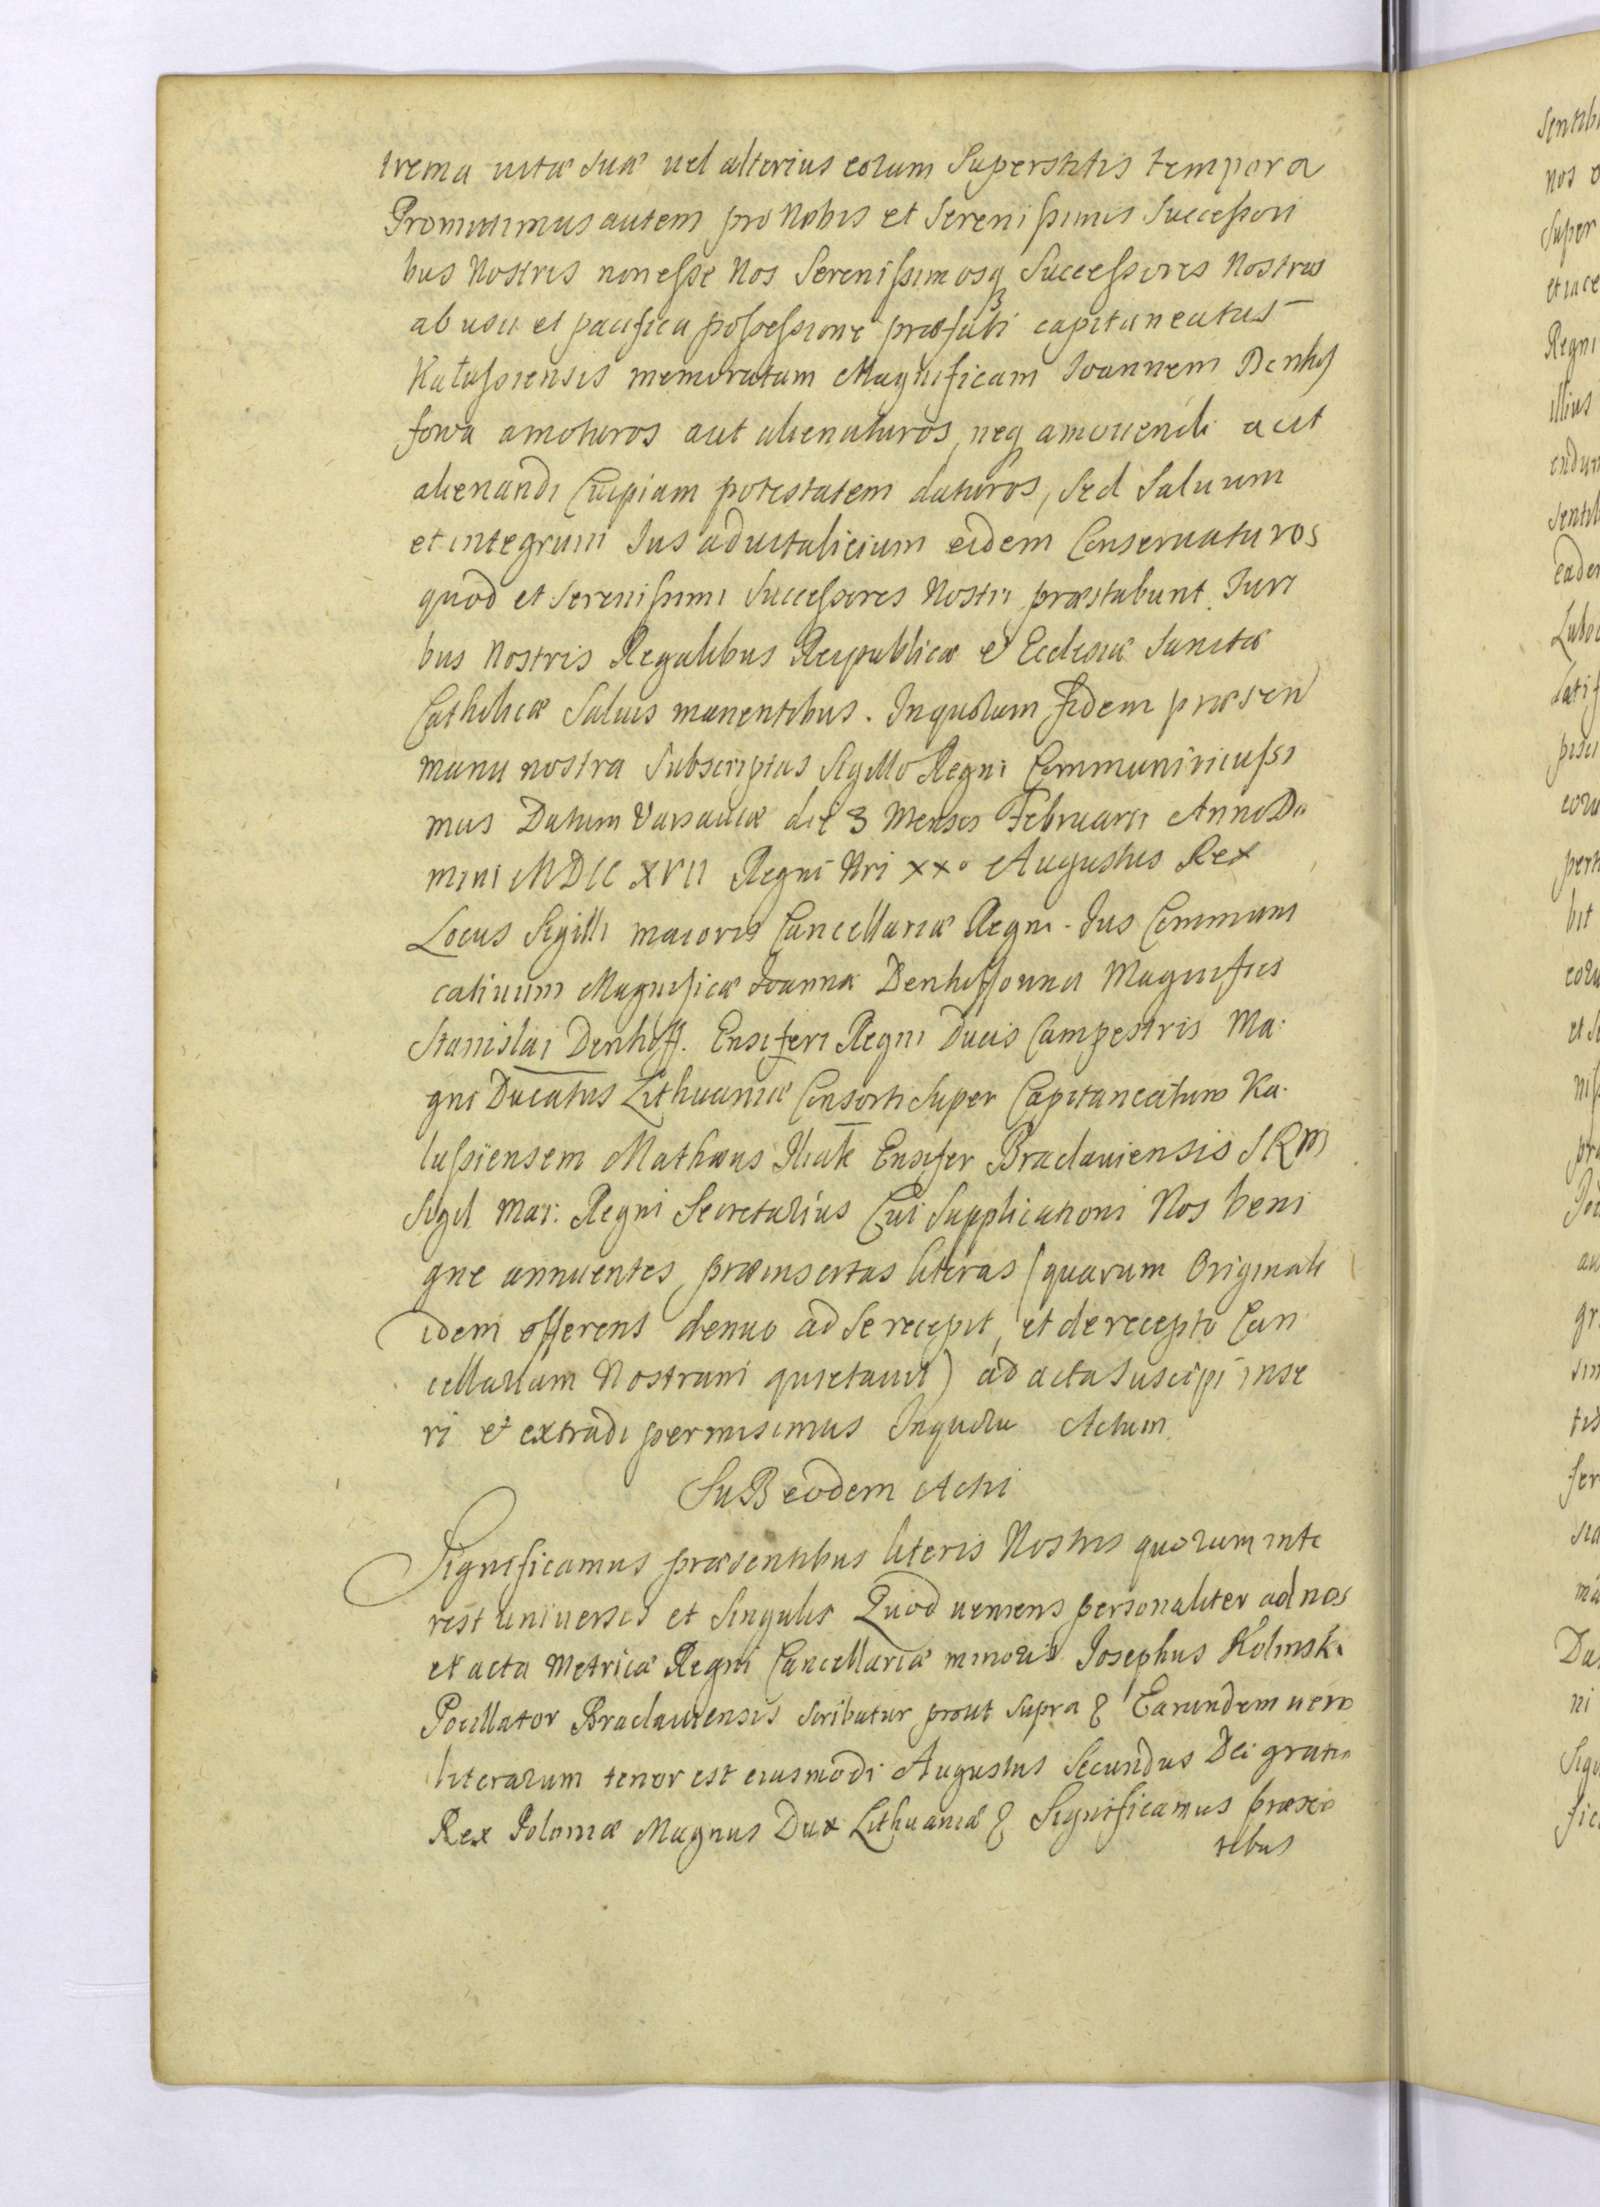 trema vitæ suæ vel alterius eorum Superstitis tempora
Promittimus autem pro Nobis et Serenissimis Successori
bus Nostris non esse Nos Serenissimosq Successores Nostros
ab usu et pacifica possessione præfati capitaneatus
Kałussiensis memoratam Magnificam Joannem Denhof
fowa amoturos aut alienaturos, neq amouendi aut
alienandi Cuipiam potestatem daturos, sed Saluum
et integrum Jus aduitalicium eidem Conseruaturos
quod et Serenissimi Successores Nostri præstabunt. Juri
bus Nostris Regalibus Reipublicæ et Ecclesiæ Sanctæ
Catholicæ Saluis manentibus. In quorum fidem præsen
manu nostra Subscriptas Sigillo Regni Communiri iussi
mus Datum Varsauiæ die 3 Mensis Februarii Anno Do
mini MDCCXVII Regni Nri XXº Augustus Rex
Locus Sigilli maioris Cancellariæ Regni. Jus Communi
catiuum Magnificæ Joannæ Denhoffouna Magnifici
Stanislai Denhoff. Ensiferi Regni Ducis Campestris Ma:
gni Ducatus Lithuaniæ Consorti Super Capitaneatum Ka:
lussiensem Mathæus Ensifer Braclauiensis SRM
Sigil. Mai: Regni Secretarius Cui Supplicationi Nos beni
gne annuentes præinsertas literas (quarum Originale
idem offerens denuo ad se recepit, et de recepto Can
cellariam Nostram quietauit) ad acta suscipi inse
ri et extradi permisimus In quoru Actum.
SuB eodem Actu
Significamus præsentibus literis Nostris quorum inte
rest uniuersis et Singulis Quod veniens personaliter ad nos
et acta Metricæ Regni Cancellariæ minoris Josephus Kolinski
Pocillator Braclauiensis scribatur prout supra & Earundem vero
literarum tenor est eiusmodi Augustus Secundus Dei gratia
Rex Poloniæ Magnus Dux Lithuaniæ & Significamus præsen
tibus